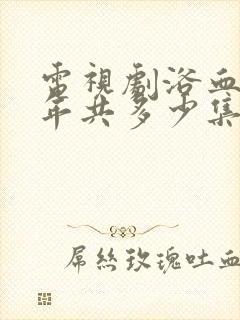 電視劇浴血
年共多少集
屌絲玫瑰吐血